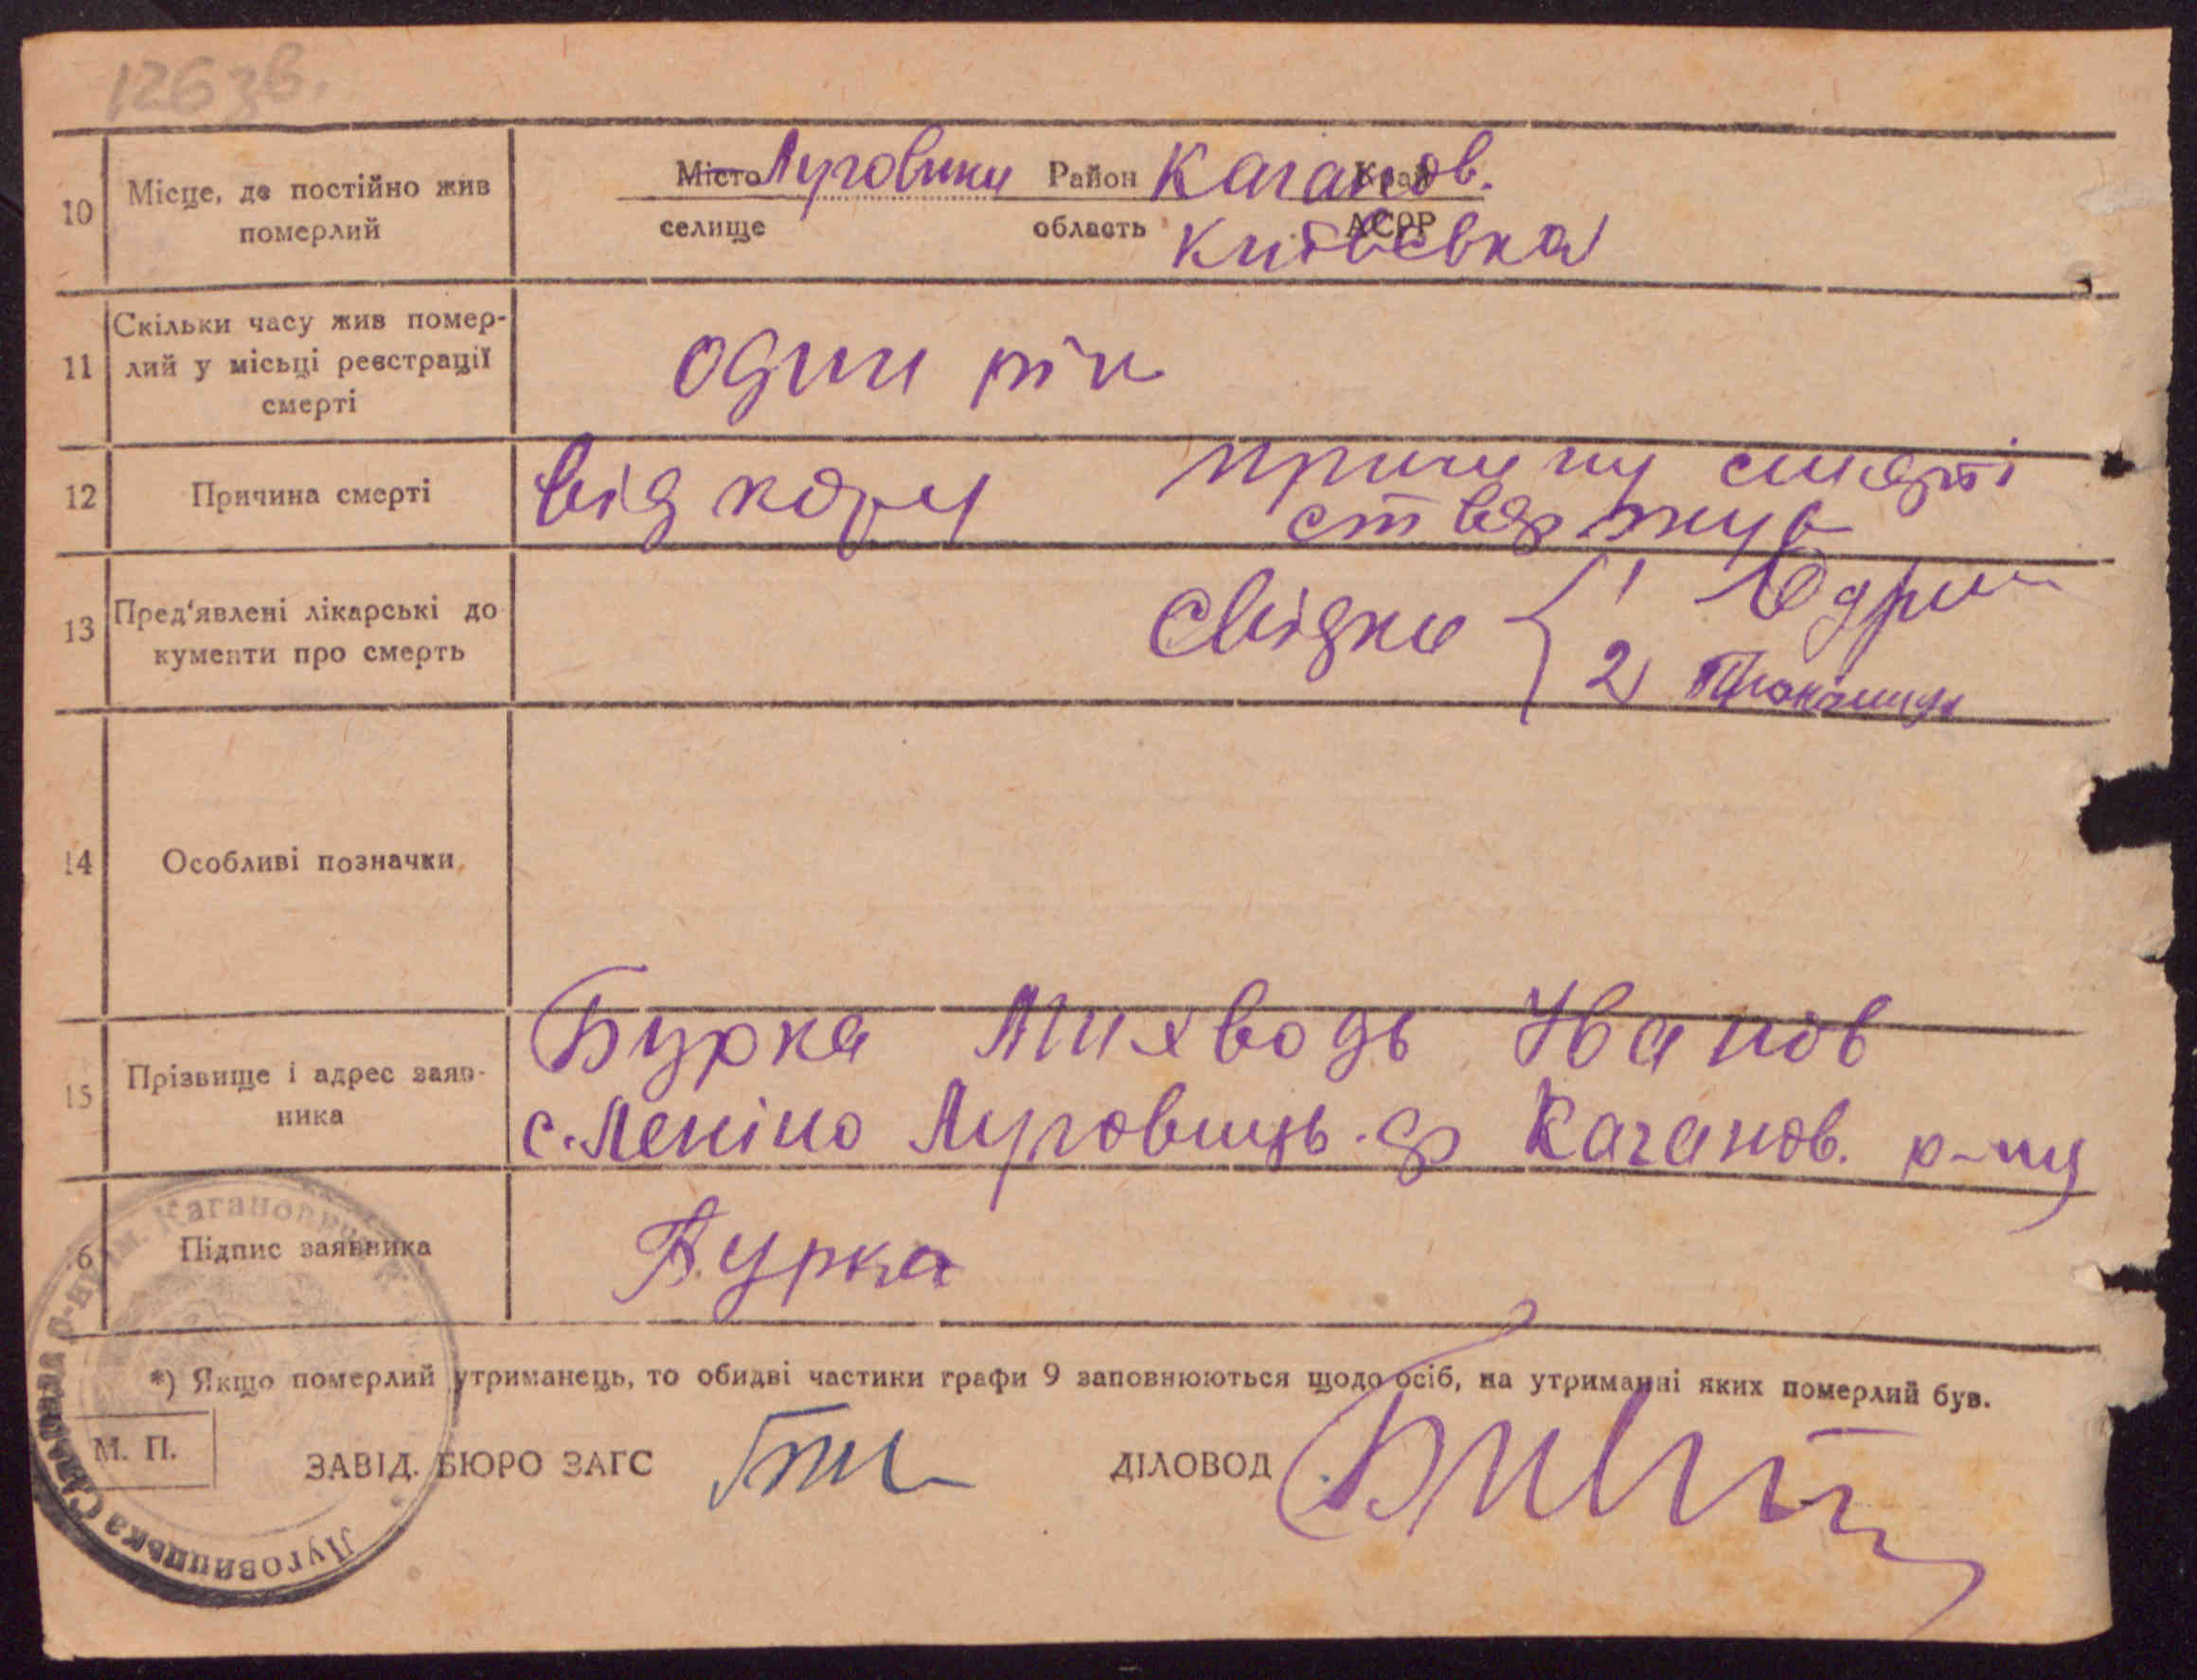 126 зв.
10 Місце, де постійно жив померлий
Місто Луговики Район Каганов. Край
селище область Київська АСРР
11 Скільки часу жив помер-
лий у місьці реєстрації
смерті
один рік
12 Причина смерті
від кору причину смерті
стверджує
13 Пред'явлені лікарські до
кументи про смерть
свідки 1
2)
14 Особливі позначки
15 Прізвище і адрес заяв-
ника
Бурка Іванов
с. Леніно Луговиць. Каганов. р-ну
6 Підпис заявника
Бурка
*) Якщо померлий утриманець, то обидві частини графи 9 заповнюються щодо осіб, на утриманні яких померлий був.
М. П.
ЗАВІД. БЮРО ЗАГС ДІЛОВОД
Луговицька Сільрада р-ну ім. Кагановича